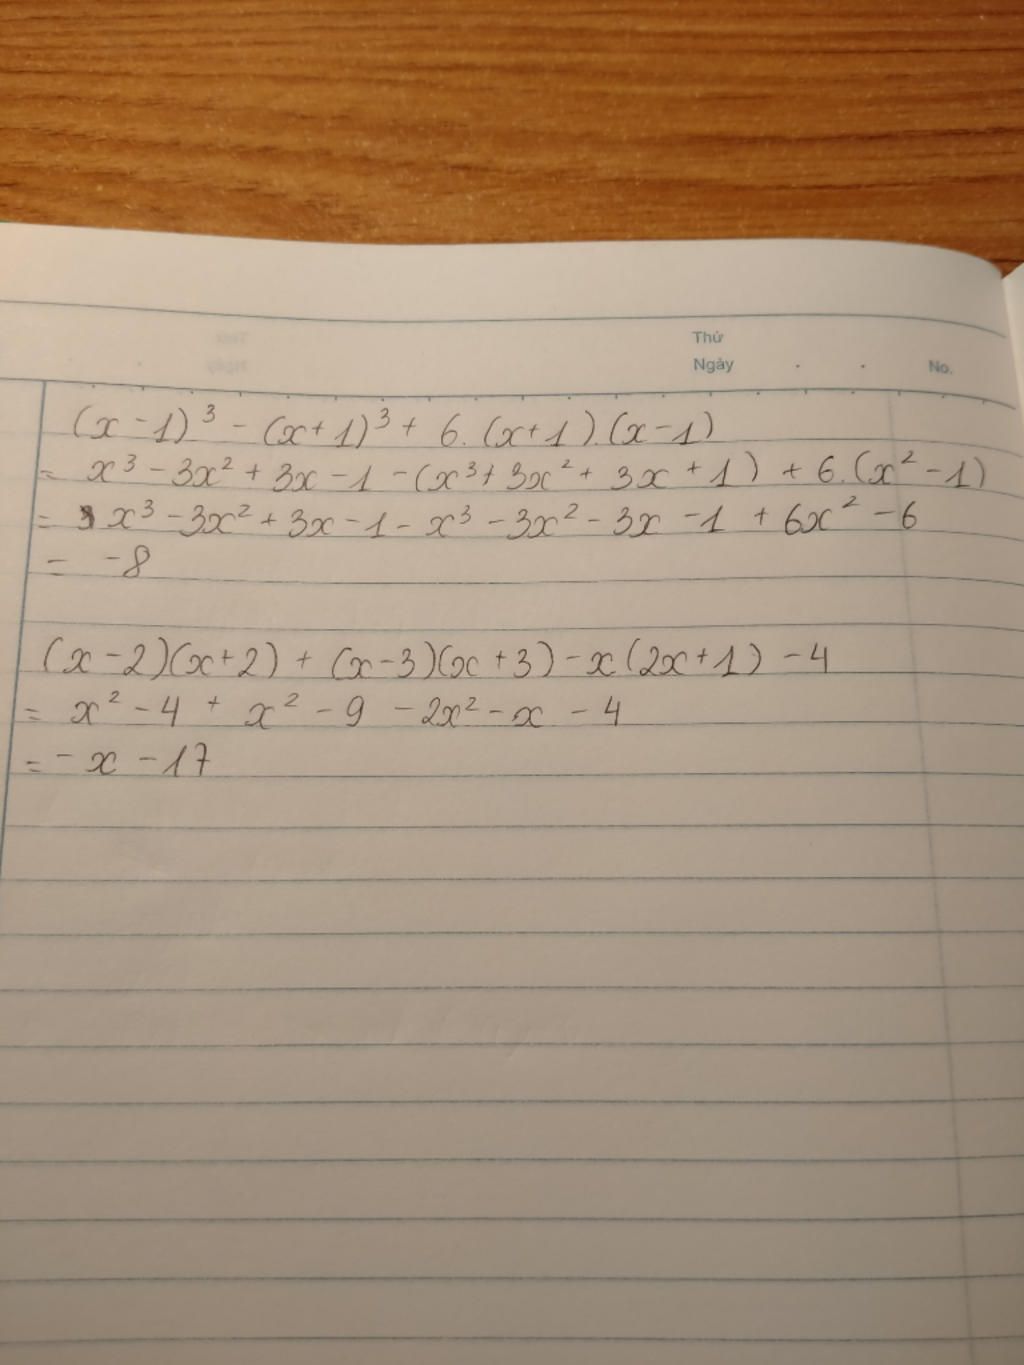 Thứ
Ngày . . No.
(x - 1)³ - (x + 1)³ + 6. (x + 1). (x - 1)
= x³ - 3x² + 3x - 1 - (x³ + 3x² + 3x + 1) + 6.(x² - 1)
= x³ - 3x² + 3x - 1 - x³ - 3x² - 3x - 1 + 6x² - 6
= -8
(x - 2)(x + 2) + (x - 3)(x + 3) - x(2x + 1) - 4
= x² - 4 + x² - 9 - 2x² - x - 4
= - x - 17